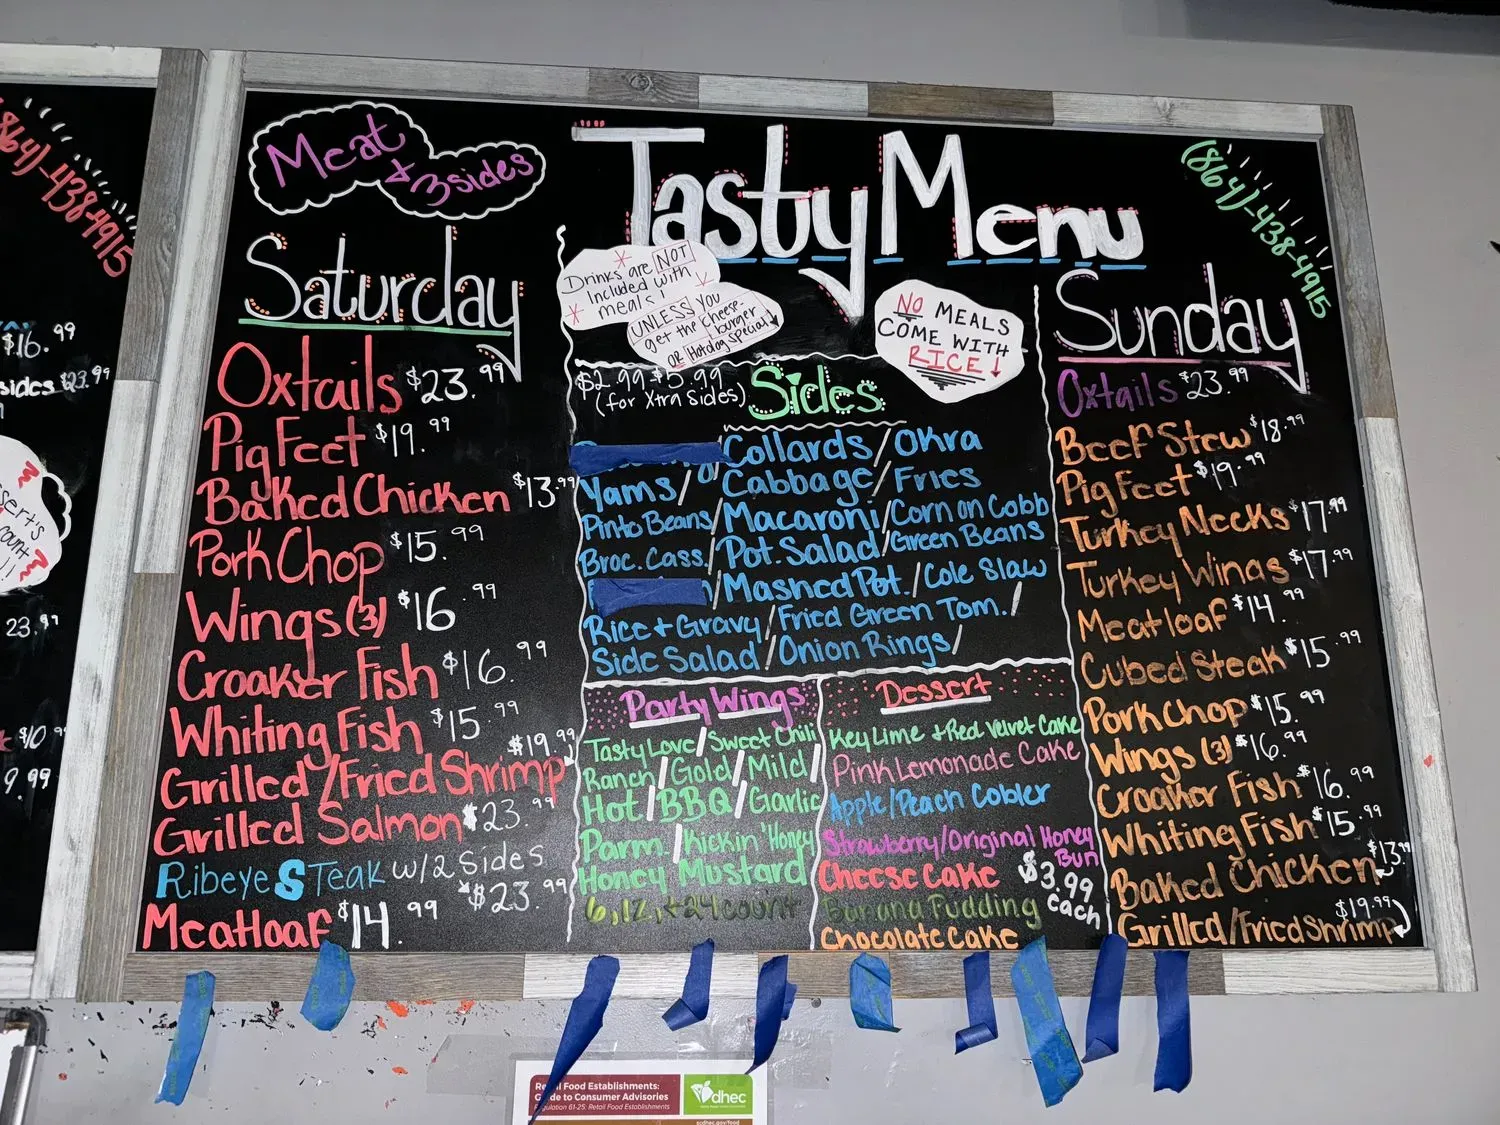 (864)-438-4915
$16.99
sides $23.99
ssert's
count!!
23.99
$10.99
9.99
Meat
+ 3 sides
Tasty Menu
(864)-438-4915
Drinks are NOT
Included with
meals!
UNLESS you
get the cheese-
burger
OR Hotdog Special!
NO MEALS
COME WITH
RICE!
Saturday
Oxtails $23.99
Pig Feet $19.99
Baked Chicken $13.99
Pork Chop $15.99
Wings (3) $16.99
Croaker Fish $16.99
Whiting Fish $15.99
$19.99
Grilled/Fried Shrimp
Grilled Salmon $23.99
Ribeye STeak w/2 Sides
$23.99
Meatloaf $14.99
$2.99 $5.99
(for Xtra Sides)
Sides
Collards/Okra
Yams/Cabbage/Fries
Pinto Beans/Macaroni/Corn on Cobb
Broc. Cass./Pot. Salad/Green Beans
/Mashed Pot./Cole Slaw
Rice + Gravy/Fried Green Tom./
Side Salad/Onion Rings/
Party Wings
Tasty Love/Sweet Chili
Ranch/Gold/Mild/
Hot/BBQ/Garlic
Parm./Kickin' Honey
Honey Mustard
6, 12, + 24 count
Dessert
Key Lime + Red Velvet Cake
Pink Lemonade Cake
Apple/Peach Cobler
Strawberry/Original Honey
Bun
Cheese Cake
$3.99
each
Banana Pudding
Chocolate Cake
Sunday
Oxtails $23.99
Beef Stew $18.99
Pig Feet $19.99
Turkey Necks $17.99
Turkey Wings $17.99
Meatloaf $14.99
Cubed Steak $15.99
Pork Chop $15.99
Wings (3) $16.99
Croaker Fish $16.99
Whiting Fish $15.99
$13.99
Baked Chicken
$19.99
Grilled/Fried Shrimp
Retail Food Establishments:
Guide to Consumer Advisories
Regulation 61-25: Retail Food Establishments
dhec
scdhec.gov/food